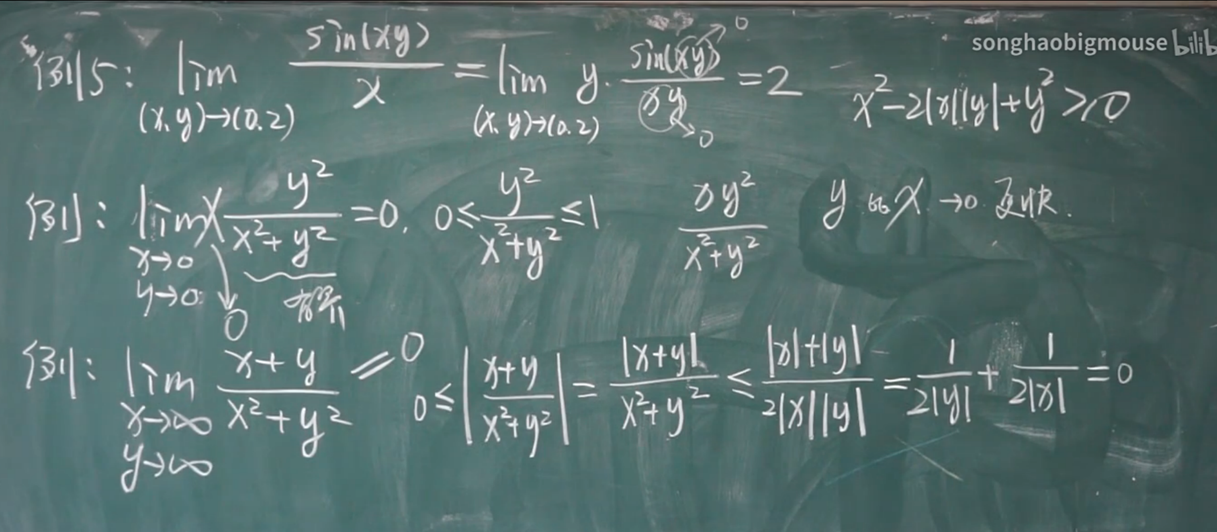 songhaobigmouse bilib
例5: lim (x,y)→(0,2) sin(xy)/x = lim (x,y)→(0,2) y· sin(xy)/xy = 2
0
0
x²-2|x||y|+y²≥0
例: lim x→0 y→0 x y²/(x²+y²) = 0. 0≤ y²/(x²+y²) ≤1
xy²/(x²+y²)
y 比 x →0
0
有界
例: lim x→∞ y→∞ (x+y)/(x²+y²) = 0
0≤ |(x+y)/(x²+y²)| = |x+y|/(x²+y²) ≤ (|x|+|y|)/(2|x||y|) = 1/(2|y|) + 1/(2|x|) = 0